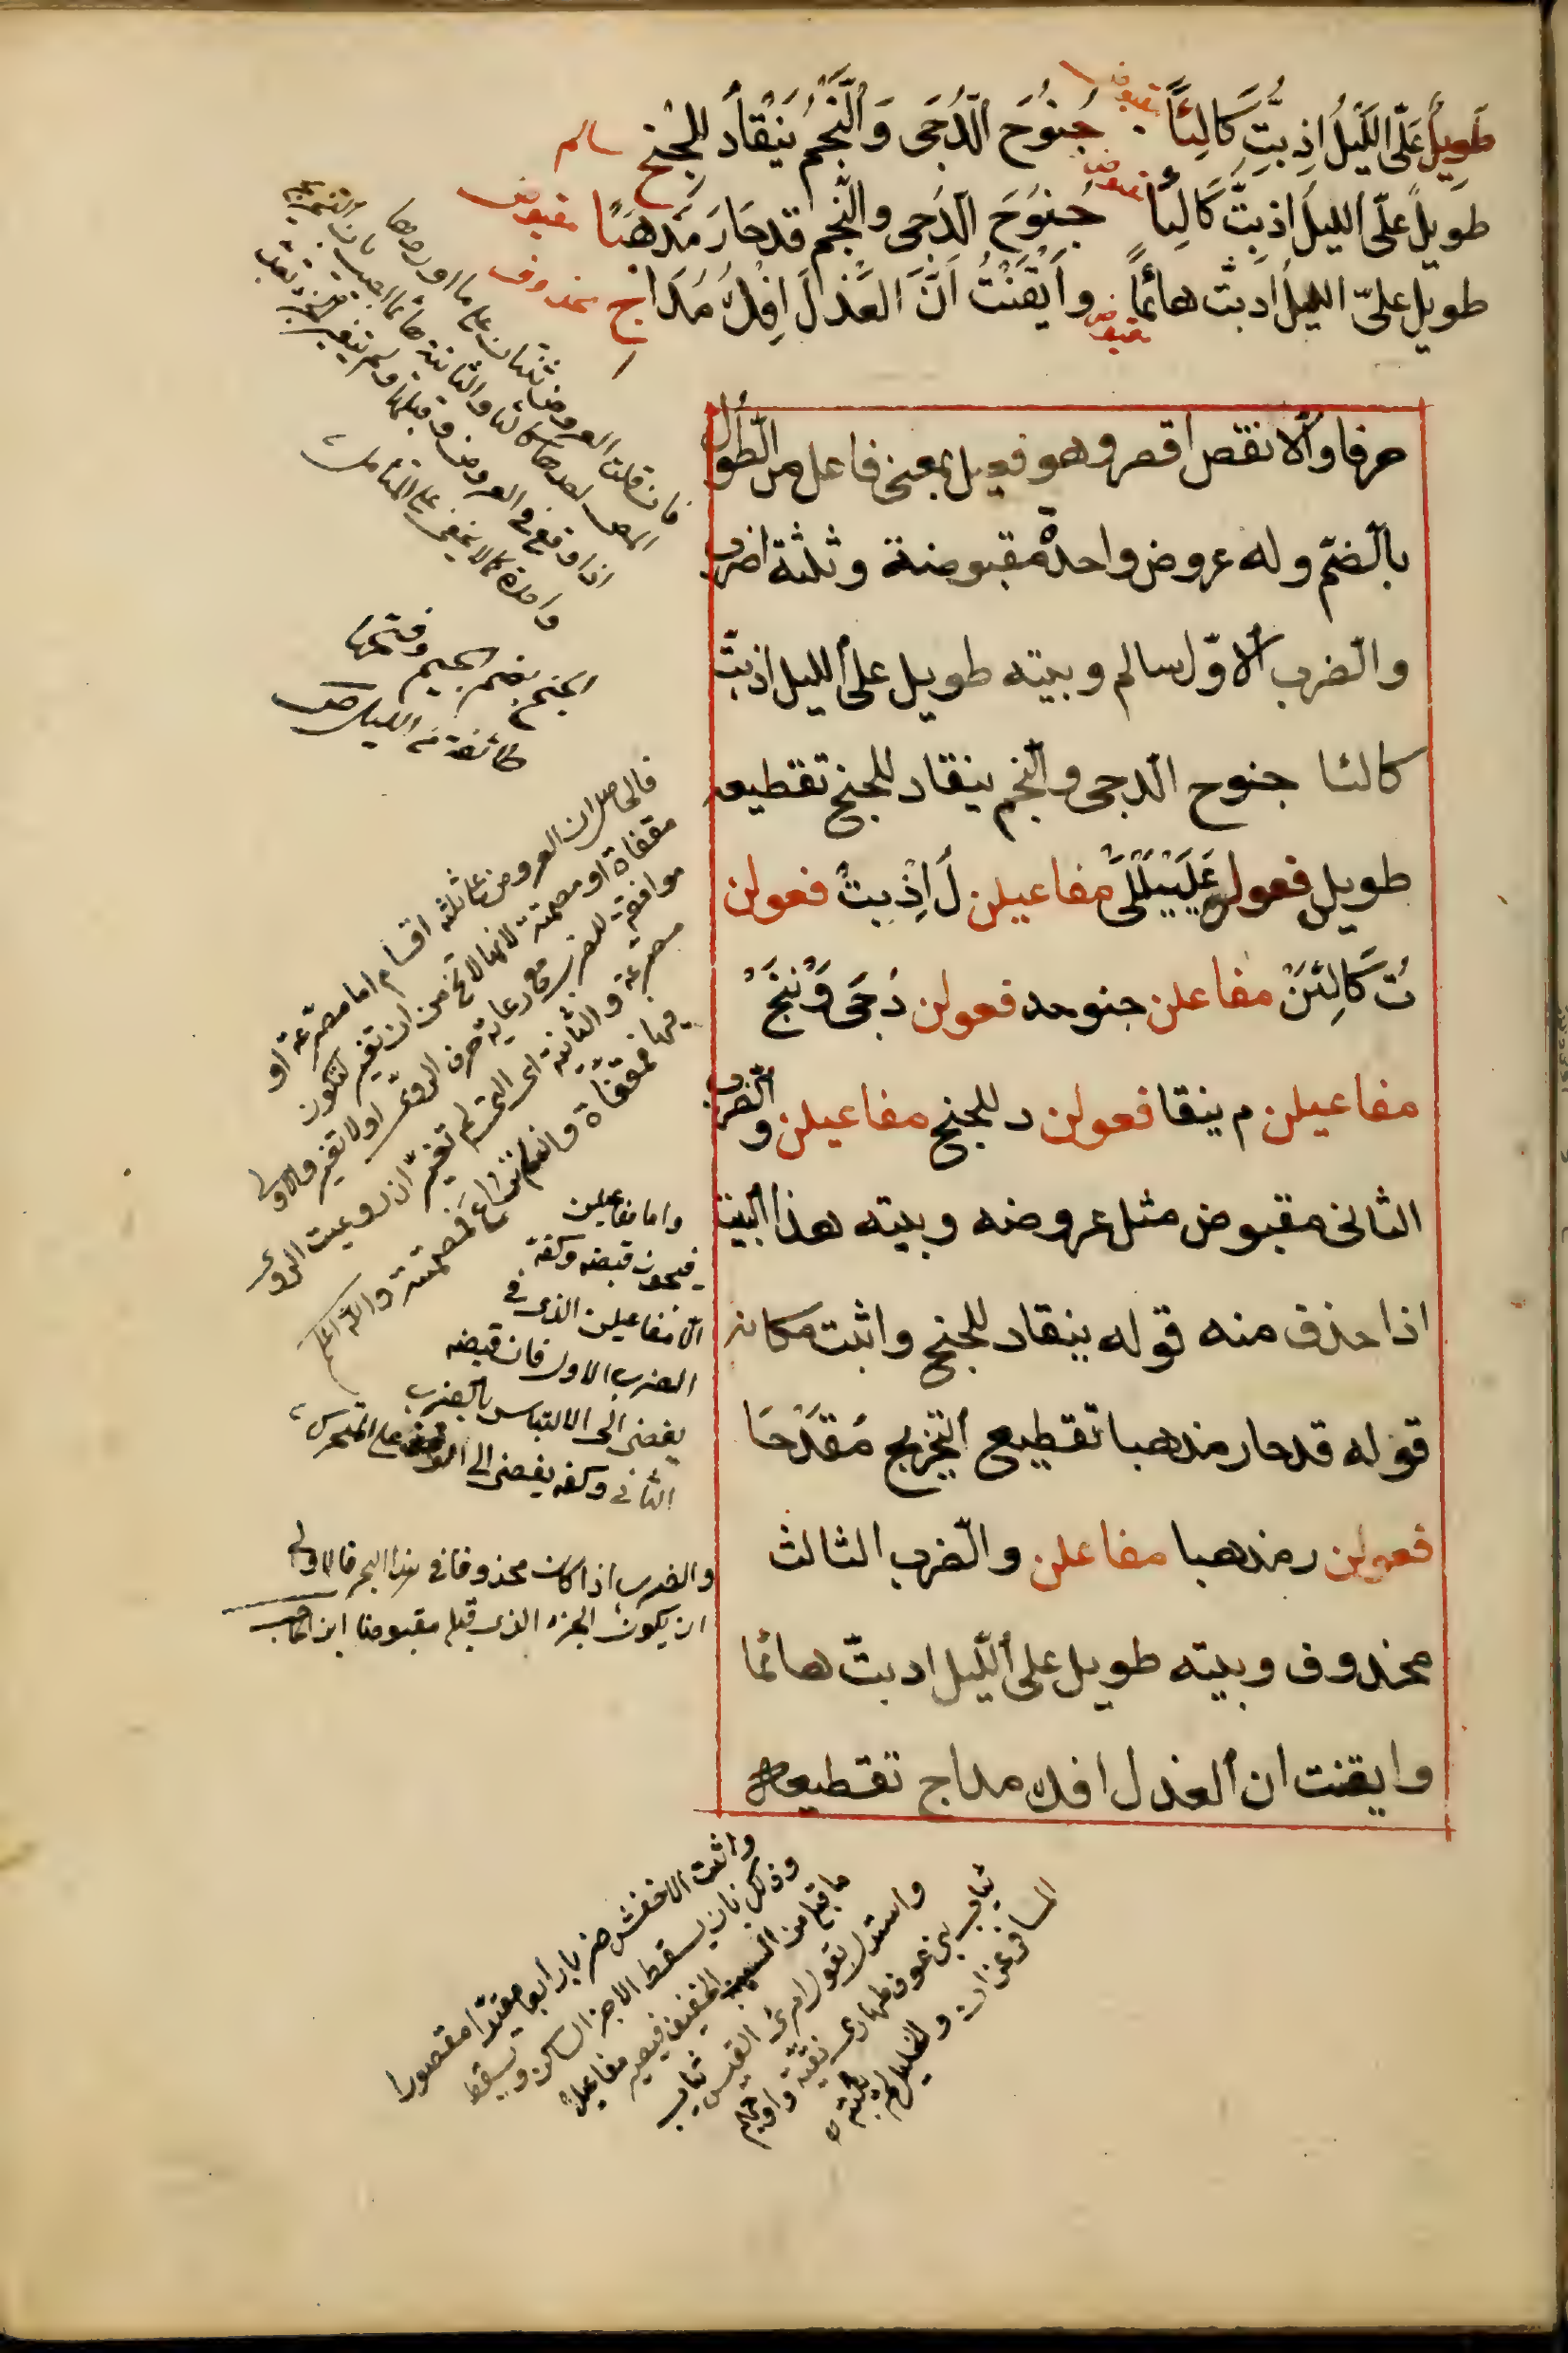 طَوِيلٌ عَلَىَّ اللَّيْلُ اِذ بِتُّ كَالِئاً مقبوض جُنُوحَ الدُّجَى وَالنَّجْمُ يَنْقَادُ لِلجُنْحِ سالم
طويل علىّ الليل اذ بِتّ كَالِئا مقبوض جُنُوحَ الدُّجى والنّجم قد حَارَ مَذْهَبًا مقبوض
طويل علىّ الليل اذ بتّ هائماً مقبوض وأيْقَنْتُ اَنَّ العَذلَ
محذوف
حرفا والا نقص أقصر وهو فعيل بمعنى فاعل من الطُّول
بالضمّ وله عروض واحدة مقبوضة وثلثة اضرب
والضرب الاوّل سالم وبيته طويل على الليل اذ بتّ
كالئا جنوح الدجى والنجم ينقاد للجنح تقطيعه
طويل فعولن عَلَيْيَلْلَىْ مفاعيلن لُ اِذْ بِتْ فعولن
تُ كَالِئَنْ مفاعلن جنوحد فعولن دُجَى وَنْنَجْ
مفاعيلن م ينقا فعولن د للجنح مفاعيلن والضرب
الثانى مقبوض مثل عروضه وبيته هذا البيت
اذا حذف منه قوله ينقاد للجنح واثبت مكانه
قوله قد حار مذهبا تقطيع التخريج مُقَدْحَا
فعولن رمذهبا مفاعلن والضرب الثالث
محذوف وبيته طويل على الليل اذ بتّ هائما
وايقنت ان العذل تقطيعه
فان قلت العروض ثنتان على ما اوردها
كالئا والثانية هائما اجيب بان
اذا وقع فى العروض
واحدة كما لا يخفى على المتأمل
الجنح بضم الجيم وفتحها
طائفة من الليل
فالحاصل ان العروض على ثلثة اقسام اما مصرعة او
مقفاة او مصمتة لانها لا تخ من ان تغير لتكون
موافقة للضرب مع رعاية حرف الروىّ او لا تغير فالاولى
مصرعة والثانية اى التى لم تغير ان روعيت الروى
فيها فمقفاة وان لم تراع فمصمتة والله اعلم
واما مفاعيلن
فيجوز قبضه وكفه
الا مفاعيلن الذى فى
الضرب الاول فان قبضه
يفضى الى الالتباس بالضرب
الثانى وكفه يفضى الى الوقف على المتحرك
والضرب اذا كان محذوفا فى هذا البحر فالاولى
ان يكون الجزء الذى قبله مقبوضا ابن الحاجب
واثبت الاخفش ضربا رابعا مقيّدا مقصورا
وذلك بان يسقط الاخر الساكن ويسقط
ما قبله من السبب الخفيف فيصير مفاعيل
واستدل بقول امرئ القيس ثياب
ثياب بنى عوف طهارى نقيّة واوجههم
المسافر غران والخليل